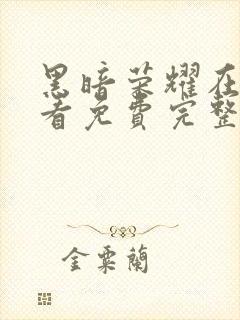 黑暗荣耀在
看免费完整
金粟蘭